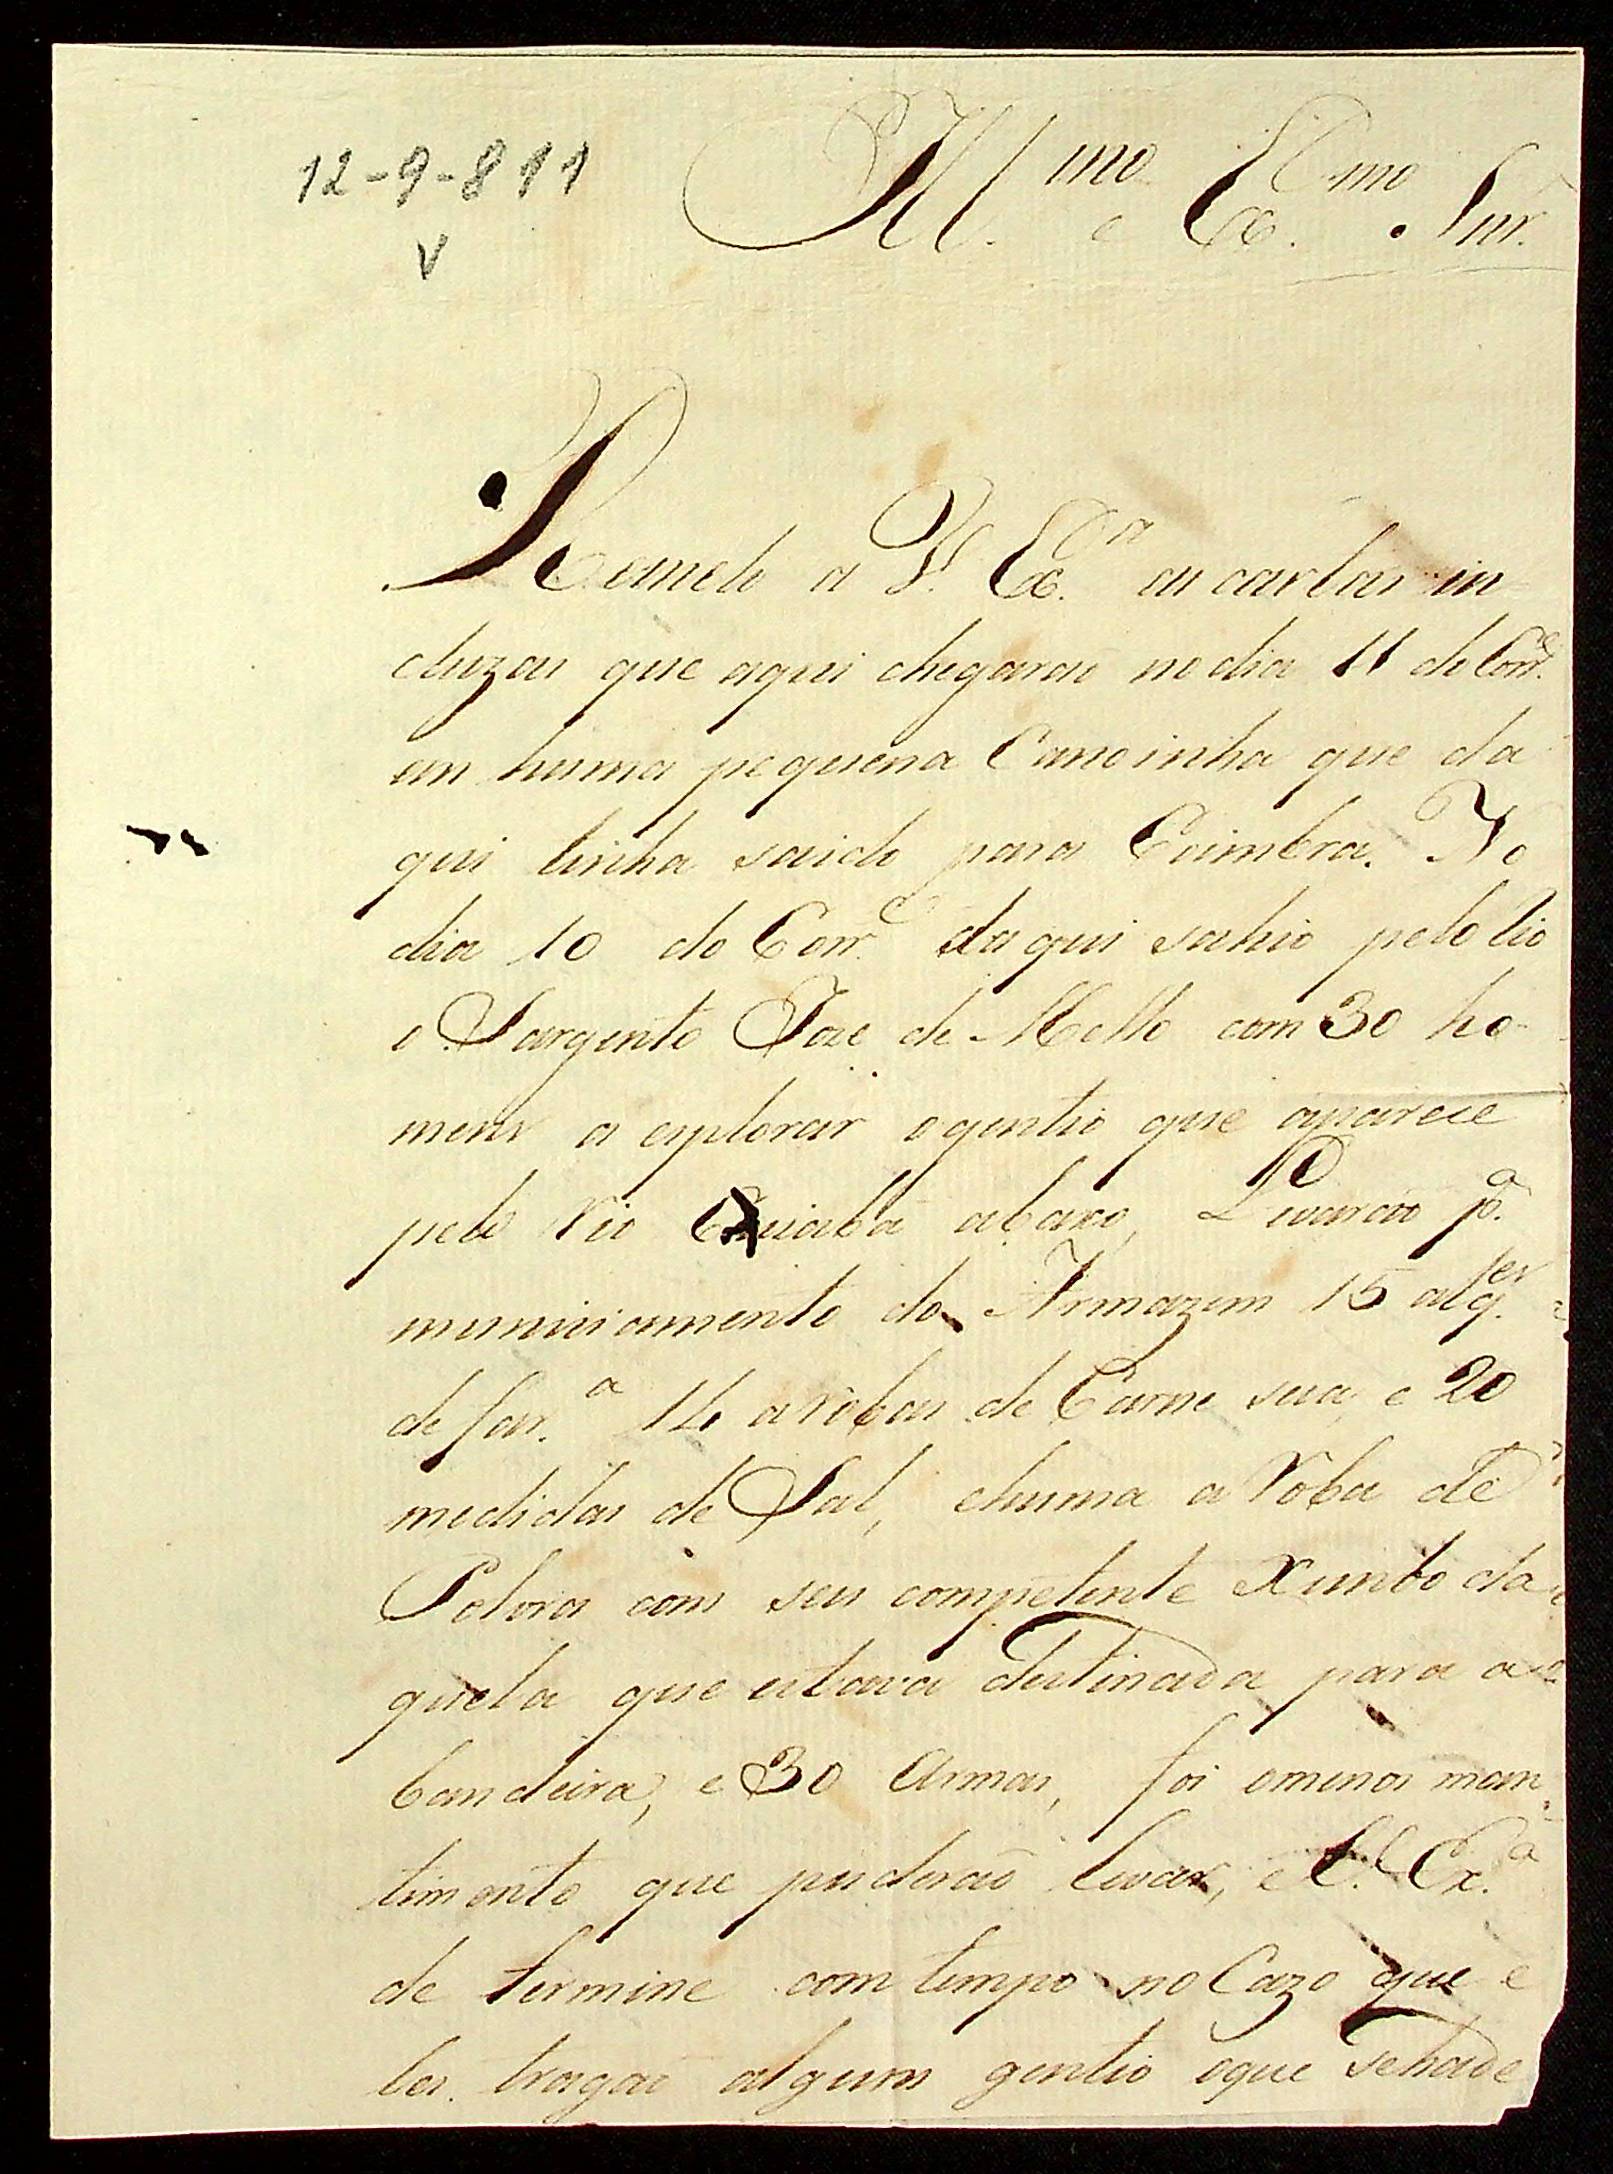 12-9-811
V
Ill.mo e Ex.mo Snr.
Remeto a V. Ex.a as cartas in
cluzas que aqui chegarão no dia 11 do Corr.e
em huma pequena Canoinha que da
qui tinha saido para Coimbra. No
dia 10 do Corr.e daqui sahio pelo Rio
o Sargento Joze de Mello com 30 ho-
mens a explorar o gentio que aparece
pelo Rio Cuiabá abaxo, Levarão p.a
municiamento do Armazem 15 alq.es
de far.a 14 arobas de Carne seca, e 20
medidas de Sal, ehuma aroba de
Polvora com seu competente Xunbo da
quela que estava destinada para a
bandeira, e 30 Armas, foi omenos man
timento que puderão levar, e V. Ex.a
de termine com tempo no Cazo que e
les tragão algum gentio oque sehade